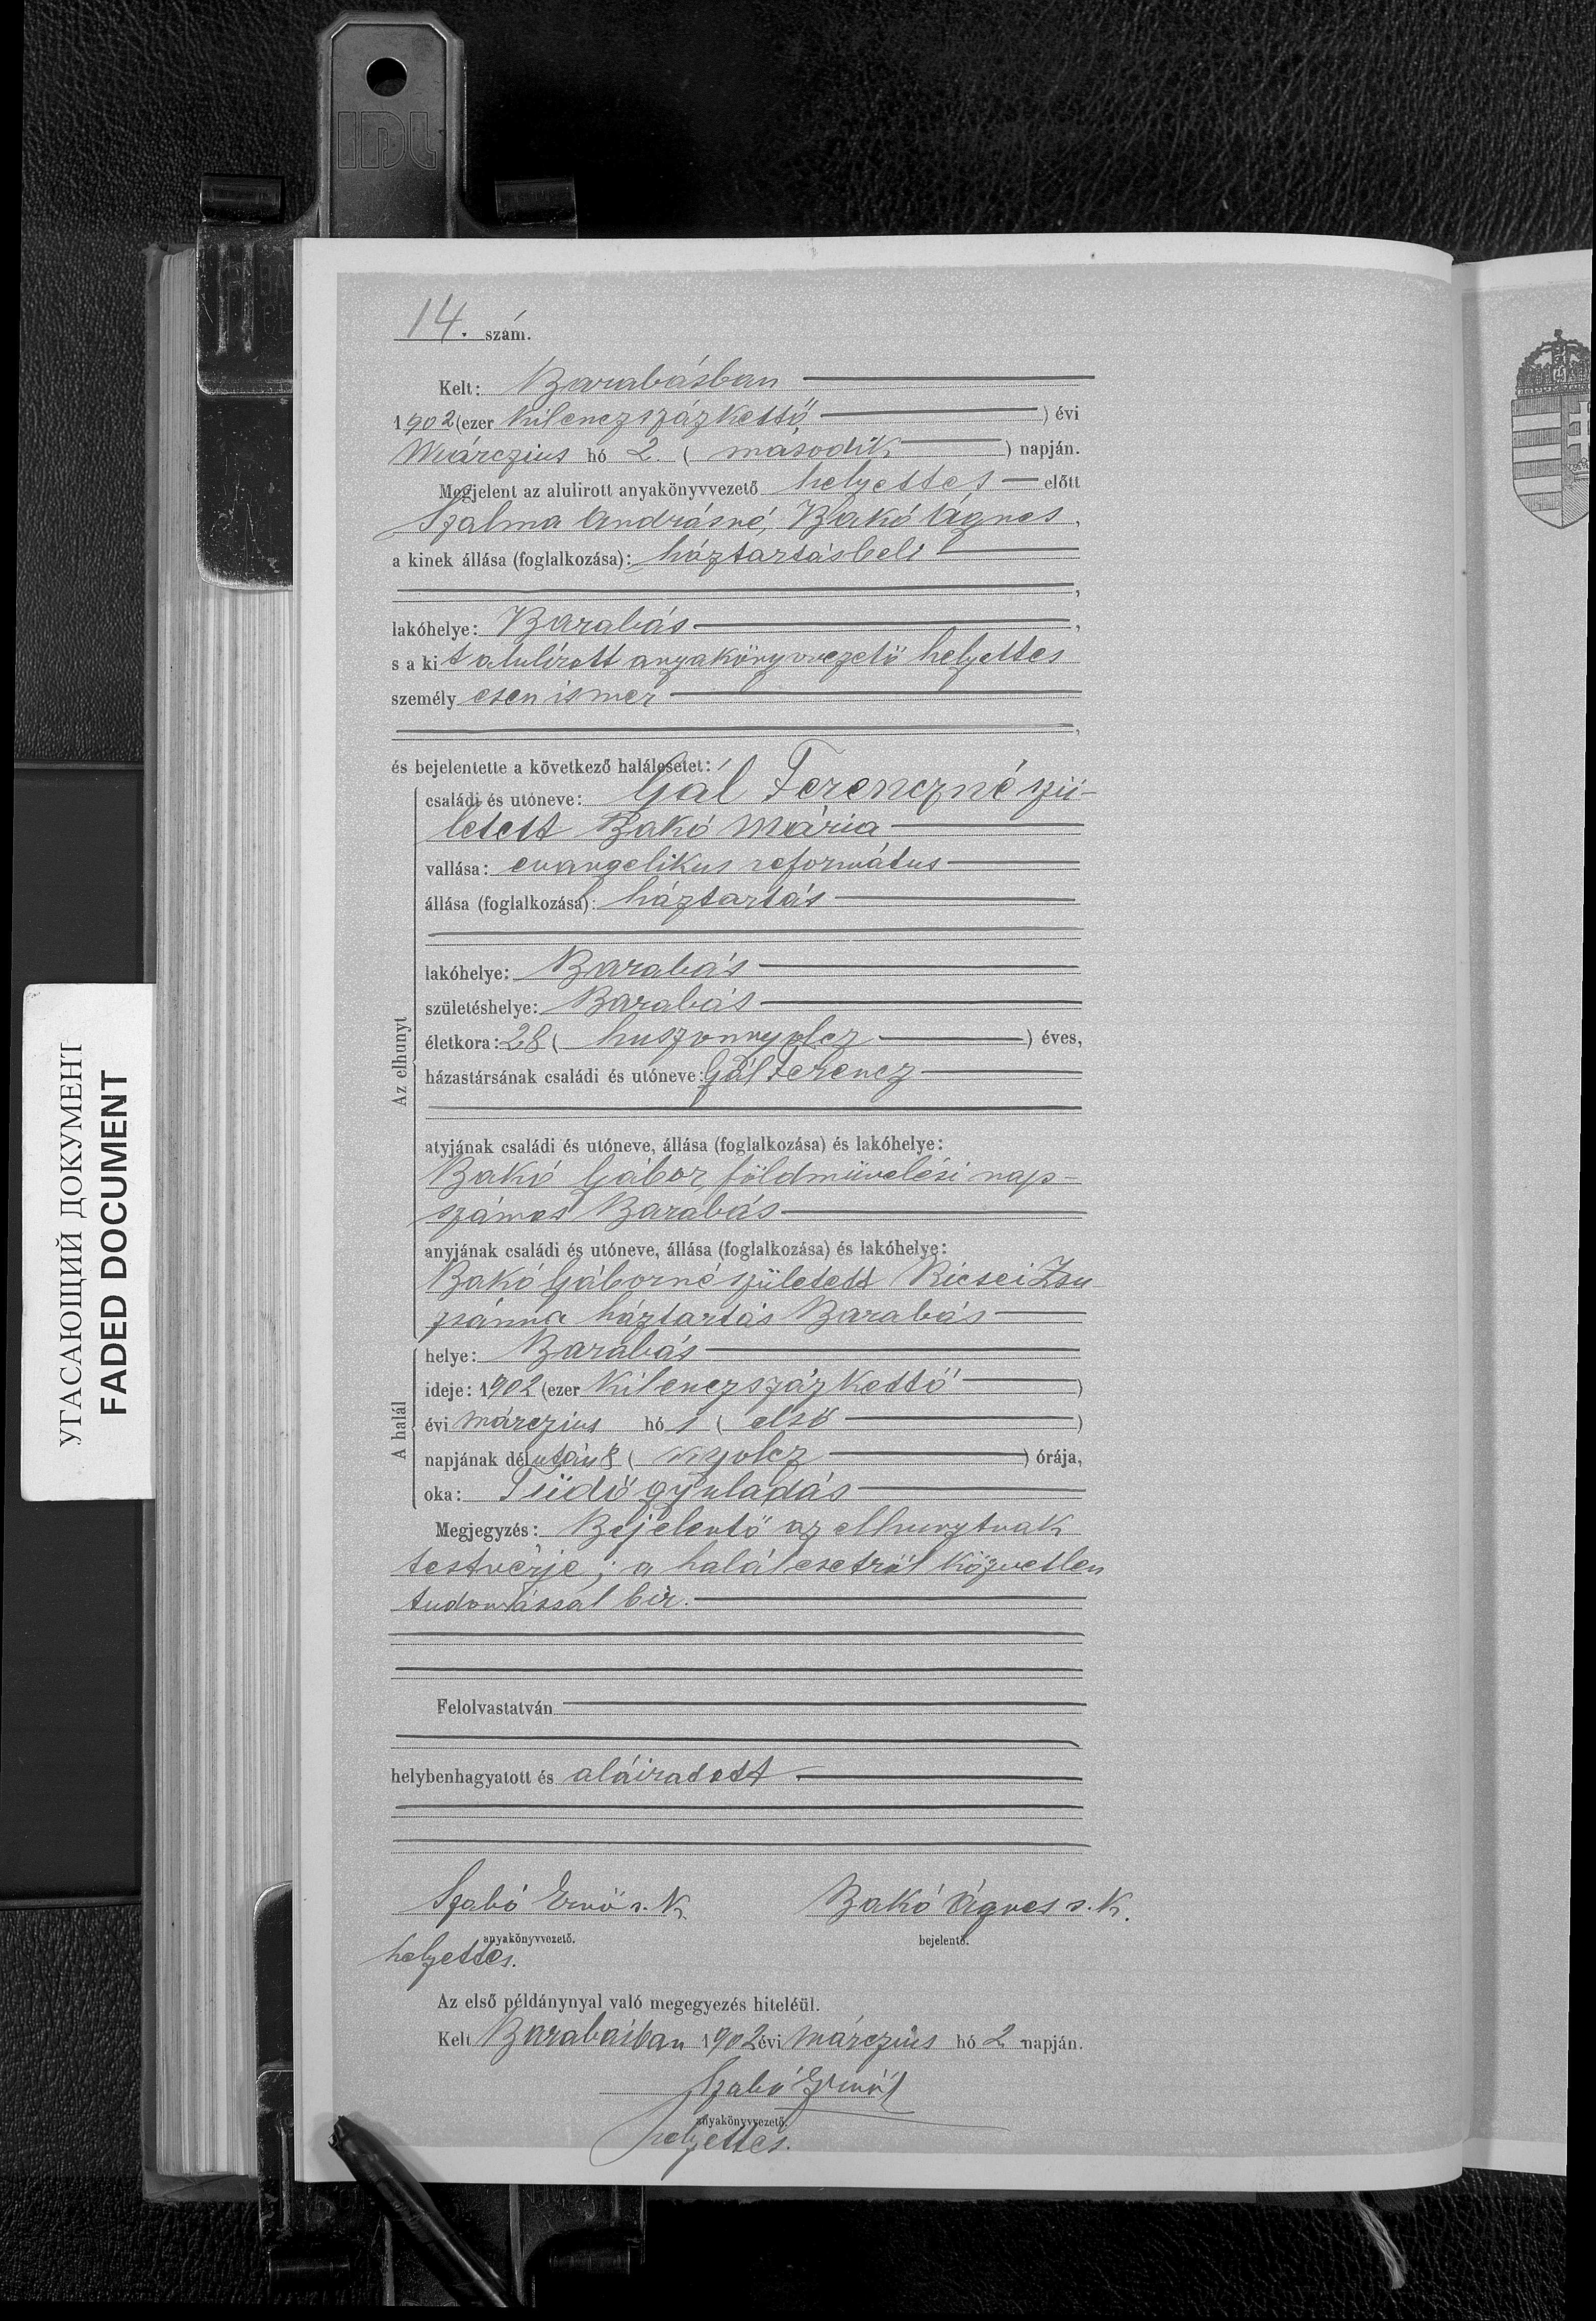 IDL
14. szám.
Kelt: Barabásban
1902 (ezer kilenczszázkettő) évi
Márczius hó 2. (második) napján.
Megjelent az alulirott anyakönyvvezető helyettes előtt
Szalma Andrásné, Bakó Ágnes,
a kinek állása (foglalkozása): háztartásbeli
,
lakóhelye: Barabás,
s a kit alulirott anyakönyvvezető helyettes
személyesen ismer
,
és bejelentette a következő halálesetet:
családi és utóneve: Gál Ferenczné szü-
letett Bakó Mária
vallása: evangelikus református
állása (foglalkozása): háztartás
lakóhelye: Barabás
születéshelye: Barabás
életkora: 28 (huszonnyolcz) éves,
házastársának családi és utóneve: Gál Ferencz
Az elhunyt
atyjának családi és utóneve, állása (foglalkozása) és lakóhelye:
Bakó Gábor, földmüvelési nap-
számos Barabás
anyjának családi és utóneve, állása (foglalkozása) és lakóhelye:
Bakó Gáborné született Ricsei Zsu-
zsánna háztartás Barabás
helye: Barabás
ideje: 1902 (ezer kilenczszázkettő)
évi márczius hó 1 (első)
A halál
napjának délután 8 (nyolcz) órája,
oka: Tüdő gyuladás
Megjegyzés: Bejelentő az elhunytnak
testvérje; a halálesetről közvetlen
tudomással bir.
Felolvastatván
helybenhagyatott és aláiratott
Szabó Ernő s. k. Bakó Ágnes s. k.
anyakönyvvezető. bejelentő.
helyettes.
Az első példánynyal való megegyezés hiteléül.
Kelt Barabásban 1902 évi márczius hó 2 napján.
Szabó Ernő
anyakönyvvezető.
helyettes.
УГАСАЮЩИЙ ДОКУМЕНТ
FADED DOCUMENT